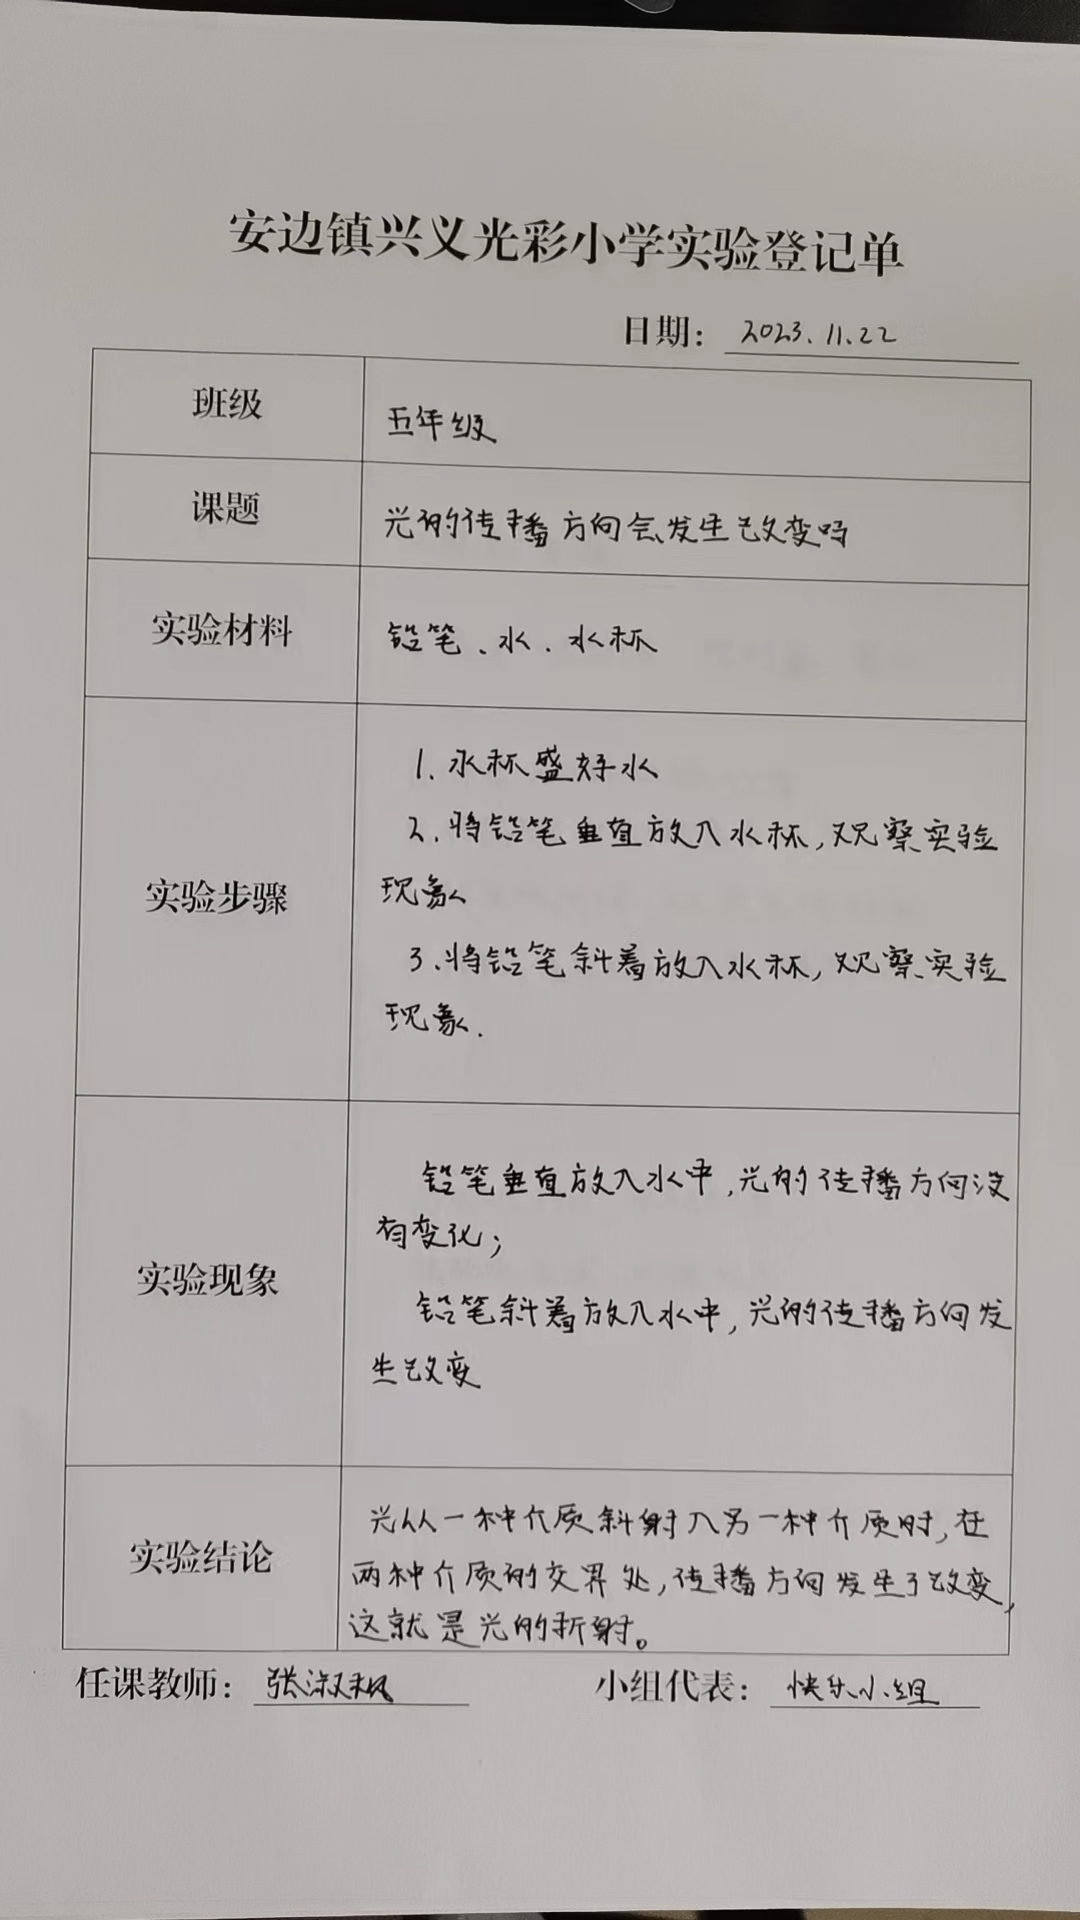 安边镇兴义光彩小学实验登记单
日期： 2023.11.22
班级 五年级
课题 光的传播方向会发生改变吗
实验材料 铅笔、水、水杯
实验步骤
1.水杯盛好水
2.将铅笔垂直放入水杯,观察实验
现象
3.将铅笔斜着放入水杯,观察实验
现象.
实验现象
铅笔垂直放入水中,光的传播方向没
有变化;
铅笔斜着放入水中,光的传播方向发
生改变
实验结论
光从一种介质斜射入另一种介质时,在
两种介质的交界处,传播方向发生了改变,
这就是光的折射。
任课教师： 张淑 小组代表： 快乐小组